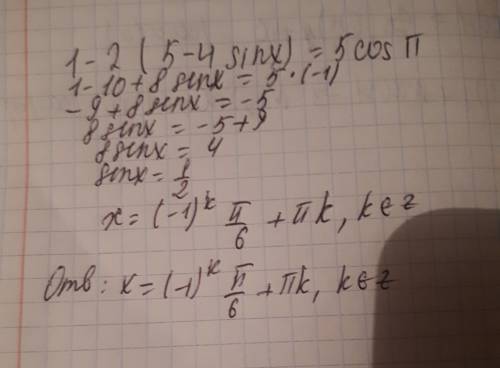 1-2 ( 5-4 sinx) = 5 cos π
1-10+8 sinx = 5·(-1)
-9+8 sinx = -5
8 sinx = -5+9
8 sinx = 4
sinx = 1/2
x = (-1)^k π/6 + πk, k∈z
Отв: x = (-1)^k π/6 + πk, k∈z